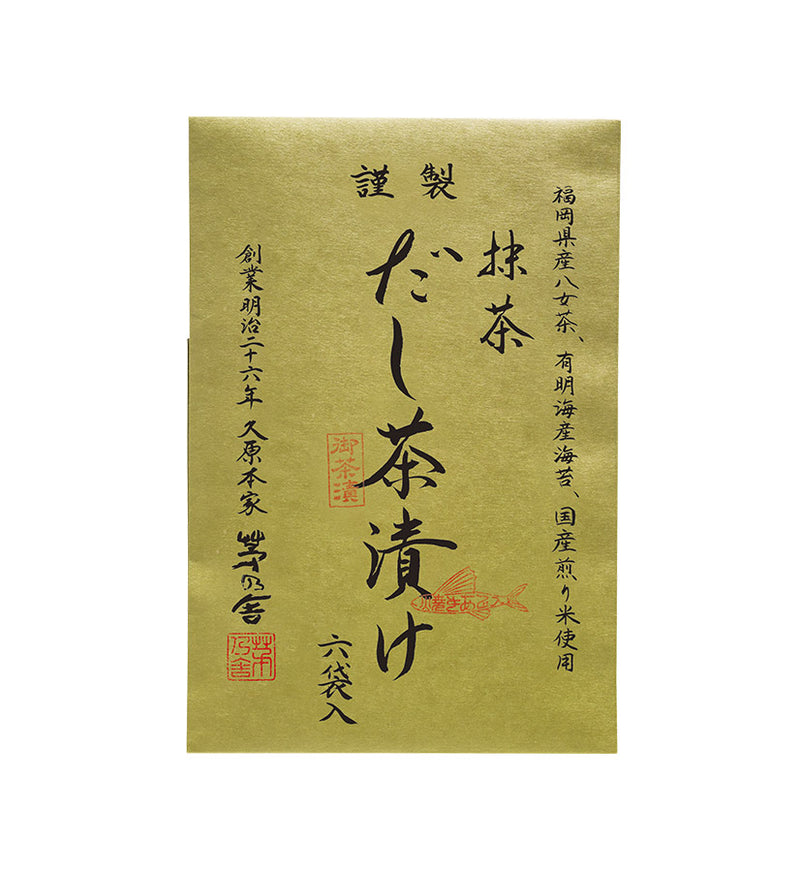 謹製
福岡県産八女茶、有明海産海苔、国産煎り米使用
抹茶
だし茶漬け
御茶漬
焼きあご入
六袋入
創業明治二十六年 久原本家 茅乃舎
茅乃舎